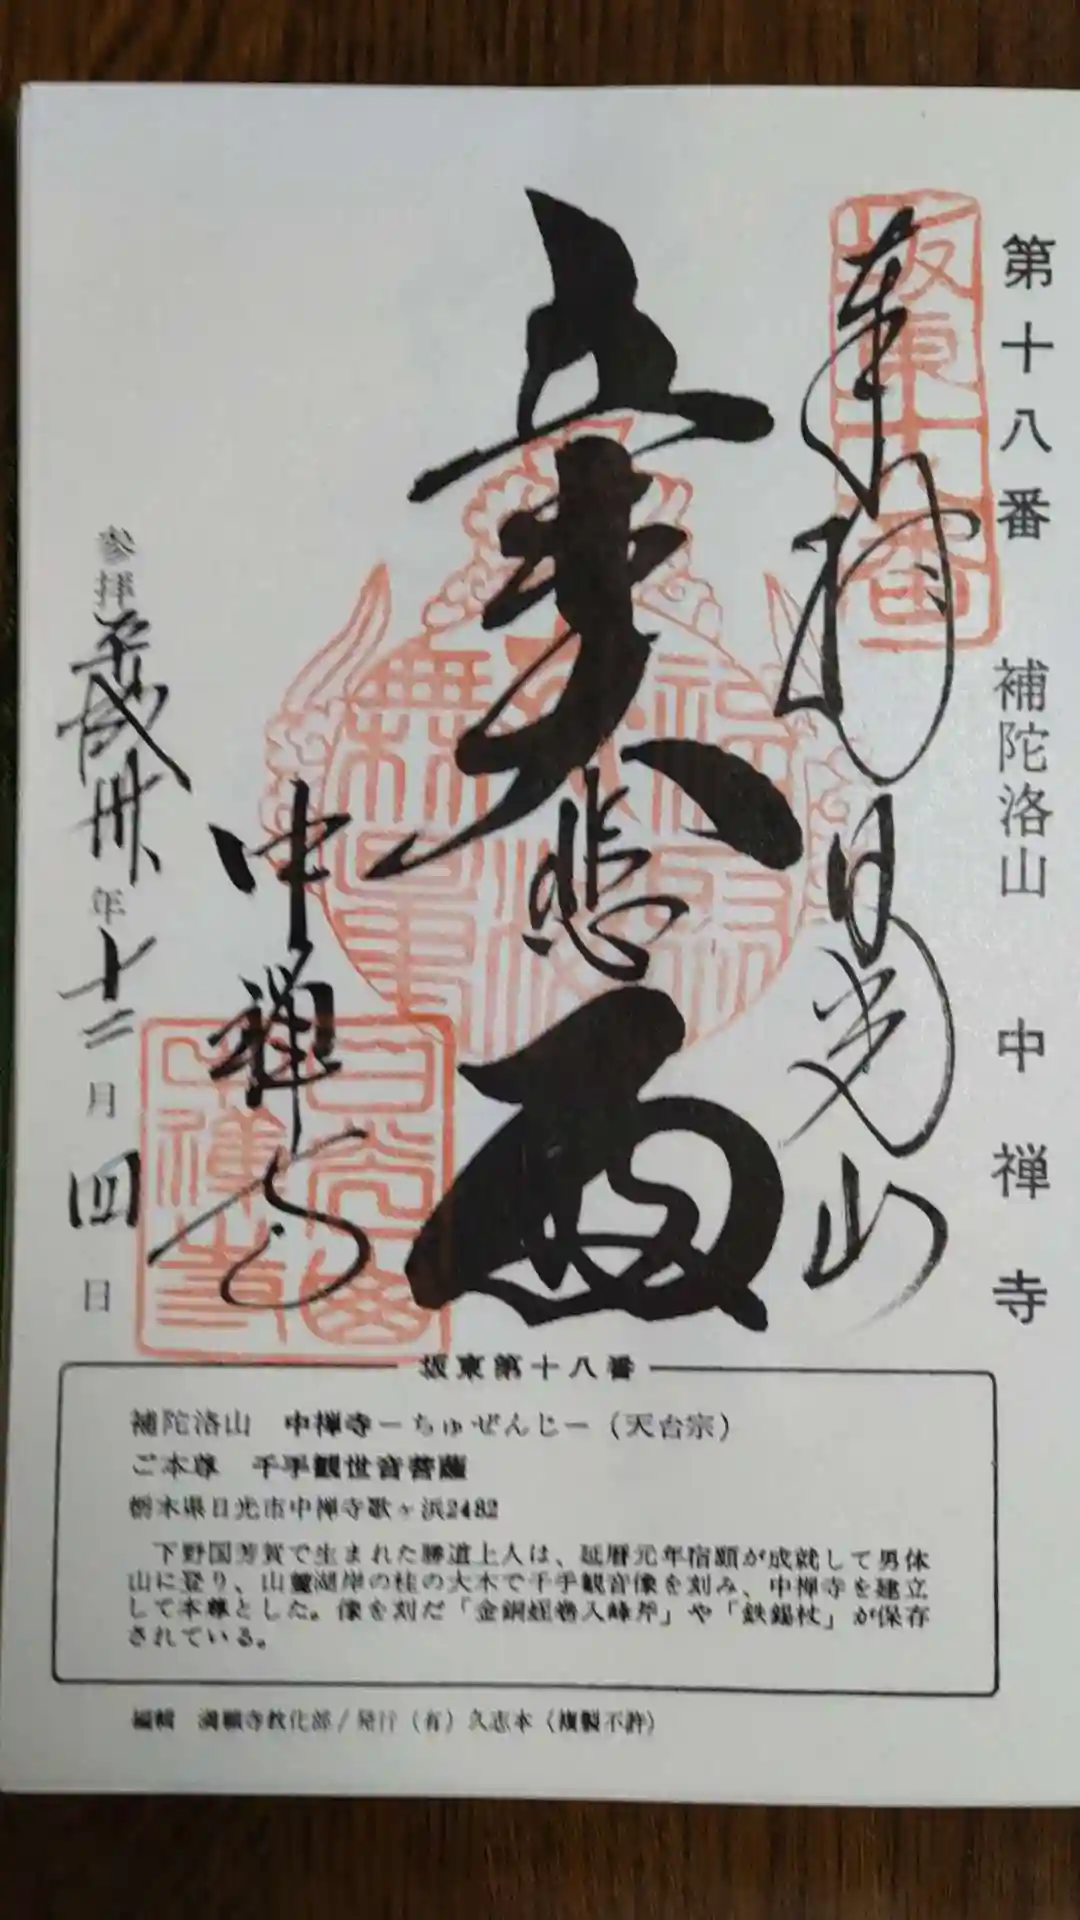 第十八番 補陀洛山 中禅寺
坂東十八番
奉拝 日光山
大悲
中禅寺
参拝平成卅年十二月四日
坂東第十八番
補陀洛山 中禅寺−ちゅぜんじ−（天台宗）
ご本尊 千手観世音菩薩
栃木県日光市中禅寺歌ヶ浜2482
下野国芳賀で生まれた勝道上人は、延暦元年宿願が成就して男体
山に登り、山麓湖岸の桂の大木で千手観音像を刻み、中禅寺を建立
して本尊とした。像を刻だ「金銅経巻入峰斧」や「鉄錫杖」が保存
されている。
編輯 満願寺教化部/発行（有）久志本（複製不許）